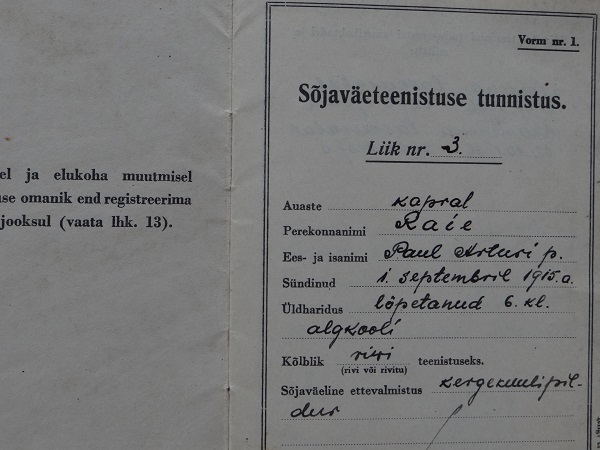 el ja elukoha muutmisel
se omanik end registreerima
jooksul (vaata lhk. 13).
Vorm nr. 1.
Sõjaväeteenistuse tunnistus.
Liik nr. 3.
Auaste kapral
Perekonnanimi Raie
Ees- ja isanimi Paul Arturi p.
Sündinud 1. septembril 1915.a.
Üldharidus lõpetanud 6. kl.
algkooli
Kõlblik rivi teenistuseks.
(rivi või rivitu)
Sõjaväeline ettevalmistus kergekuulipil-
dur